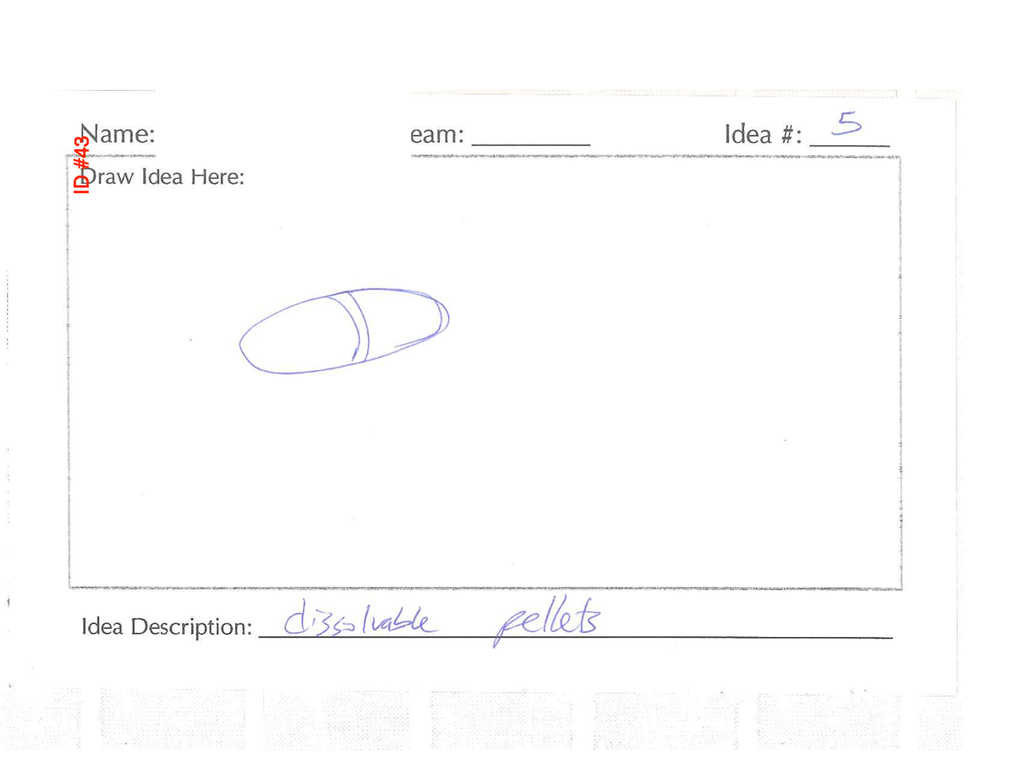 Name: eam: Idea #: 5
ID #43
Draw Idea Here:
Idea Description: dissolvable pellets